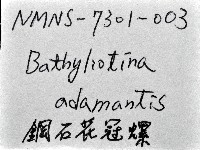 NMNS-7301-003
Bathyliotina
adamantis
鑽石花冠螺